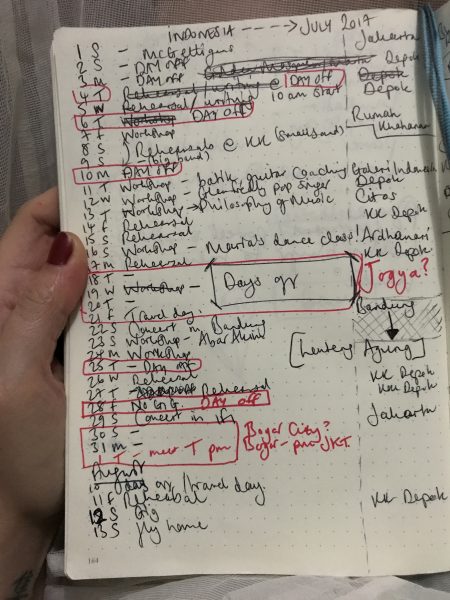 INDONESIA ----> JULY 2017
1 S - McGettigans Jakarta
2 S - DAY OFF
3 M - DAY OFF Depok
4 T - Rehearsal / writing @ DAY OFF Depok
5 W - Rehearsal / writing 10am start Depok
6 T - Workshop DAY OFF
7 F - Workshop Rumah
8 S - Rehearsals @ KK (small band)
9 S - (big band)
10 M - DAY OFF
11 T - Workshop - batik, guitar coaching Galeri Indonesia
12 W - Workshop - Pop Singer Depok
13 T - Workshop -> Philosophy of Music Citos
14 F - Rehearsal KK Depok
15 S - Rehearsal
16 S - Workshop - Maria's dance class! Ardhanari
17 M - Rehearsal KK Depok
18 T -
19 W - Workshop - Days off Jogya?
20 T -
21 F - Travel day. Bandung
22 S - Concert in Bandung
23 S - Workshop -
24 M - Workshop [Lenteng Agung]
25 T - DAY off
26 W - Rehearsal KK Depok
27 T - Rehearsal KK Depok
28 F - No GIG DAY off
29 S - Concert in Jakarta
30 S - Bogor City?
31 M - Bogor - pm JKT
1 T - meet T pm
August
10 day off / travel day.
11 F Rehearsal
12 S Gig KK Depok
13 S fly home
164